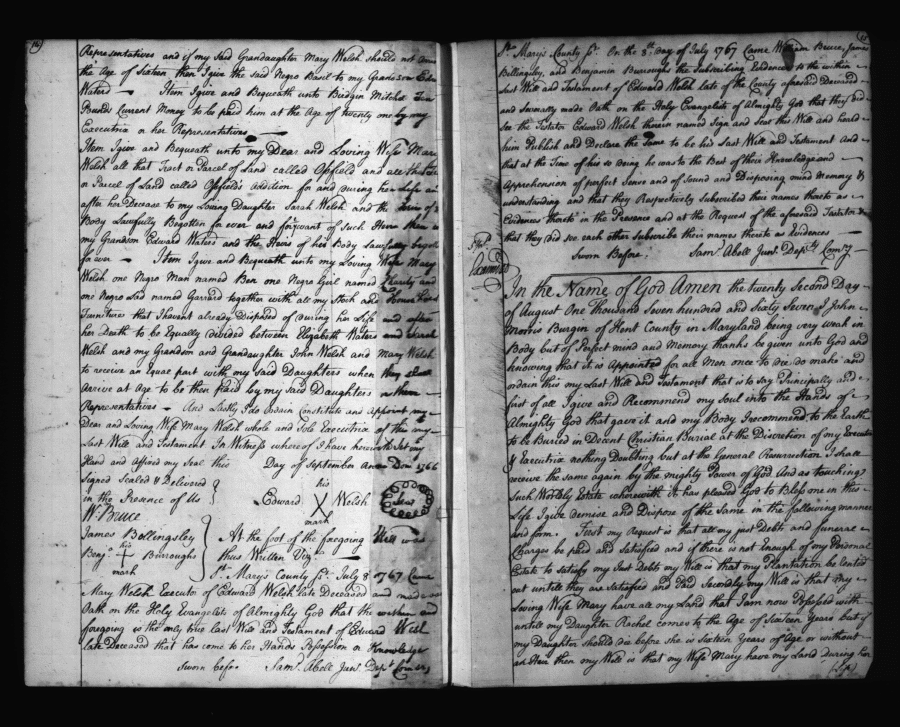 Representatives and if my Said Grandaughter Mary Welsh should not
the Age of Sixteen then I give the said Negro to my Grandson
Waters — Item I give and Bequeath unto Bridgin Mitchel
Pounds Current Money to be paid him at the Age of twenty one by my
Executrix or her Representatives —
Item I give and Bequeath unto my Dear and Loving Wife Mary
Welsh all that Tract or Parcel of Land called and all that
or Parcel of Land called addition for and during her Life
after her Decease to my Loving Daughter Sarah Welsh and the Heirs of
Body Lawfully Begotten for ever and for want of such Heirs then
my Grandson Edward Waters and the Heirs of his Body Lawfully
for ever — Item I give and Bequeath unto my Loving Wife Mary
Welsh one Negro Man named Ben one Negro Girl named and
one Negro Lad named Garrard together with all my Stock and
furnitures that I havent already Disposed of during her Life and after
her Death to be Equally Divided between Elizabeth Waters and Sarah
Welsh and my Grandson and Grandaughter John Welsh and Mary Welsh
to receive an Equal part with my Said Daughters when they shall
Arrive at Age to be then paid by my said Daughters or their
Representatives — And Lastly I do ordain Constitute and Appoint my
Dear and Loving Wife Mary Welsh whole and Sole Executrix of this my
Last Will and Testament In Witness whereof I have hereunto Set my
Hand and Affixed my Seal this Day of September Anno Dom 1766
Signed Sealed & Delivered
in the Presence of Us
his
Edward X Welsh
mark
Seal
Wm. Bruce
James Billingsley
his
Benj. + Burroughs
mark
At the foot of the foregoing Will was
thus Written Viz —
St. Marys County Sc. July 8 1767 Came
Mary Welsh Executor of Edward Welsh late Deceased and made
Oath on the Holy Evangelists of Almighty God that the within and
foregoing is the only true Last Will and Testament of Edward Welsh
late Deceased that has come to her Hands Possession or Knowledge
Sworn before Saml. Abell Junr. Depy. Comry
St. Mary's County Sc. On the 8th. day of July 1767 Came William Bruce, James
Billingsley, and Benjamin Burroughs the Subscribing Evidences to the within
Last Will and Testament of Edward Welsh late of the County aforesaid Deceased
and Severally made Oath on the Holy Evangelists of Almighty God that they did
See the Testator Edward Welsh therein named Sign and Seal this Will and heard
him Publish and Declare the Same to be his Last Will and Testament And
that at the Time of his so doing he was to the Best of their Knowledge and
Apprehension of perfect Sense and of Sound and Disposing mind Memory &
understanding and that they Respectively Subscribed their names thereto as
Evidences thereto in the Presence and at the Request of the aforesaid Testator &
that they did see each other Subscribe their names thereto as Evidences
Sworn Before Saml. Abell Junr. Depty. Comry
Examined
In the Name of God Amen the twenty Second Day
of August One Thousand Seven hundred and Sixty Seven I John
Morris Burgin of Kent County in Maryland being very weak in
Body but of Perfect mind and Memory thanks be given unto God and
knowing that it is Appointed for all Men once to die do make and
ordain this my Last Will and Testament that is to say Principally and
first of all I give and Recommend my Soul into the Hands of
Almighty God that gave it and my Body I recommend to the Earth
to be Buried in Decent Christian Burial at the Discretion of my Executor
& Executrix nothing Doubting but at the General Resurrection I shall
receive the same again by the mighty Power of God And as touching
Such Worldly Estate wherewith it has pleased God to Bless me in this
Life I give demise and Dispose of the Same in the following manner
and form. First my Request is that all my just Debts and funeral
Charges be paid and Satisfied and if there is not Enough of my Personal
Estate to satisfy my Just Debts my Will is that my Plantation be rented
out untill they are Satisfied and Paid Secondly my Will is that my
Loving Wife Mary have all my Land that I am now Possessed with
untill my Daughter Rachel comes to the Age of Sixteen Years but if
my Daughter should die before she is Sixteen Years of Age or without
an Heir then my Will is that my Wife Mary have my Land During her